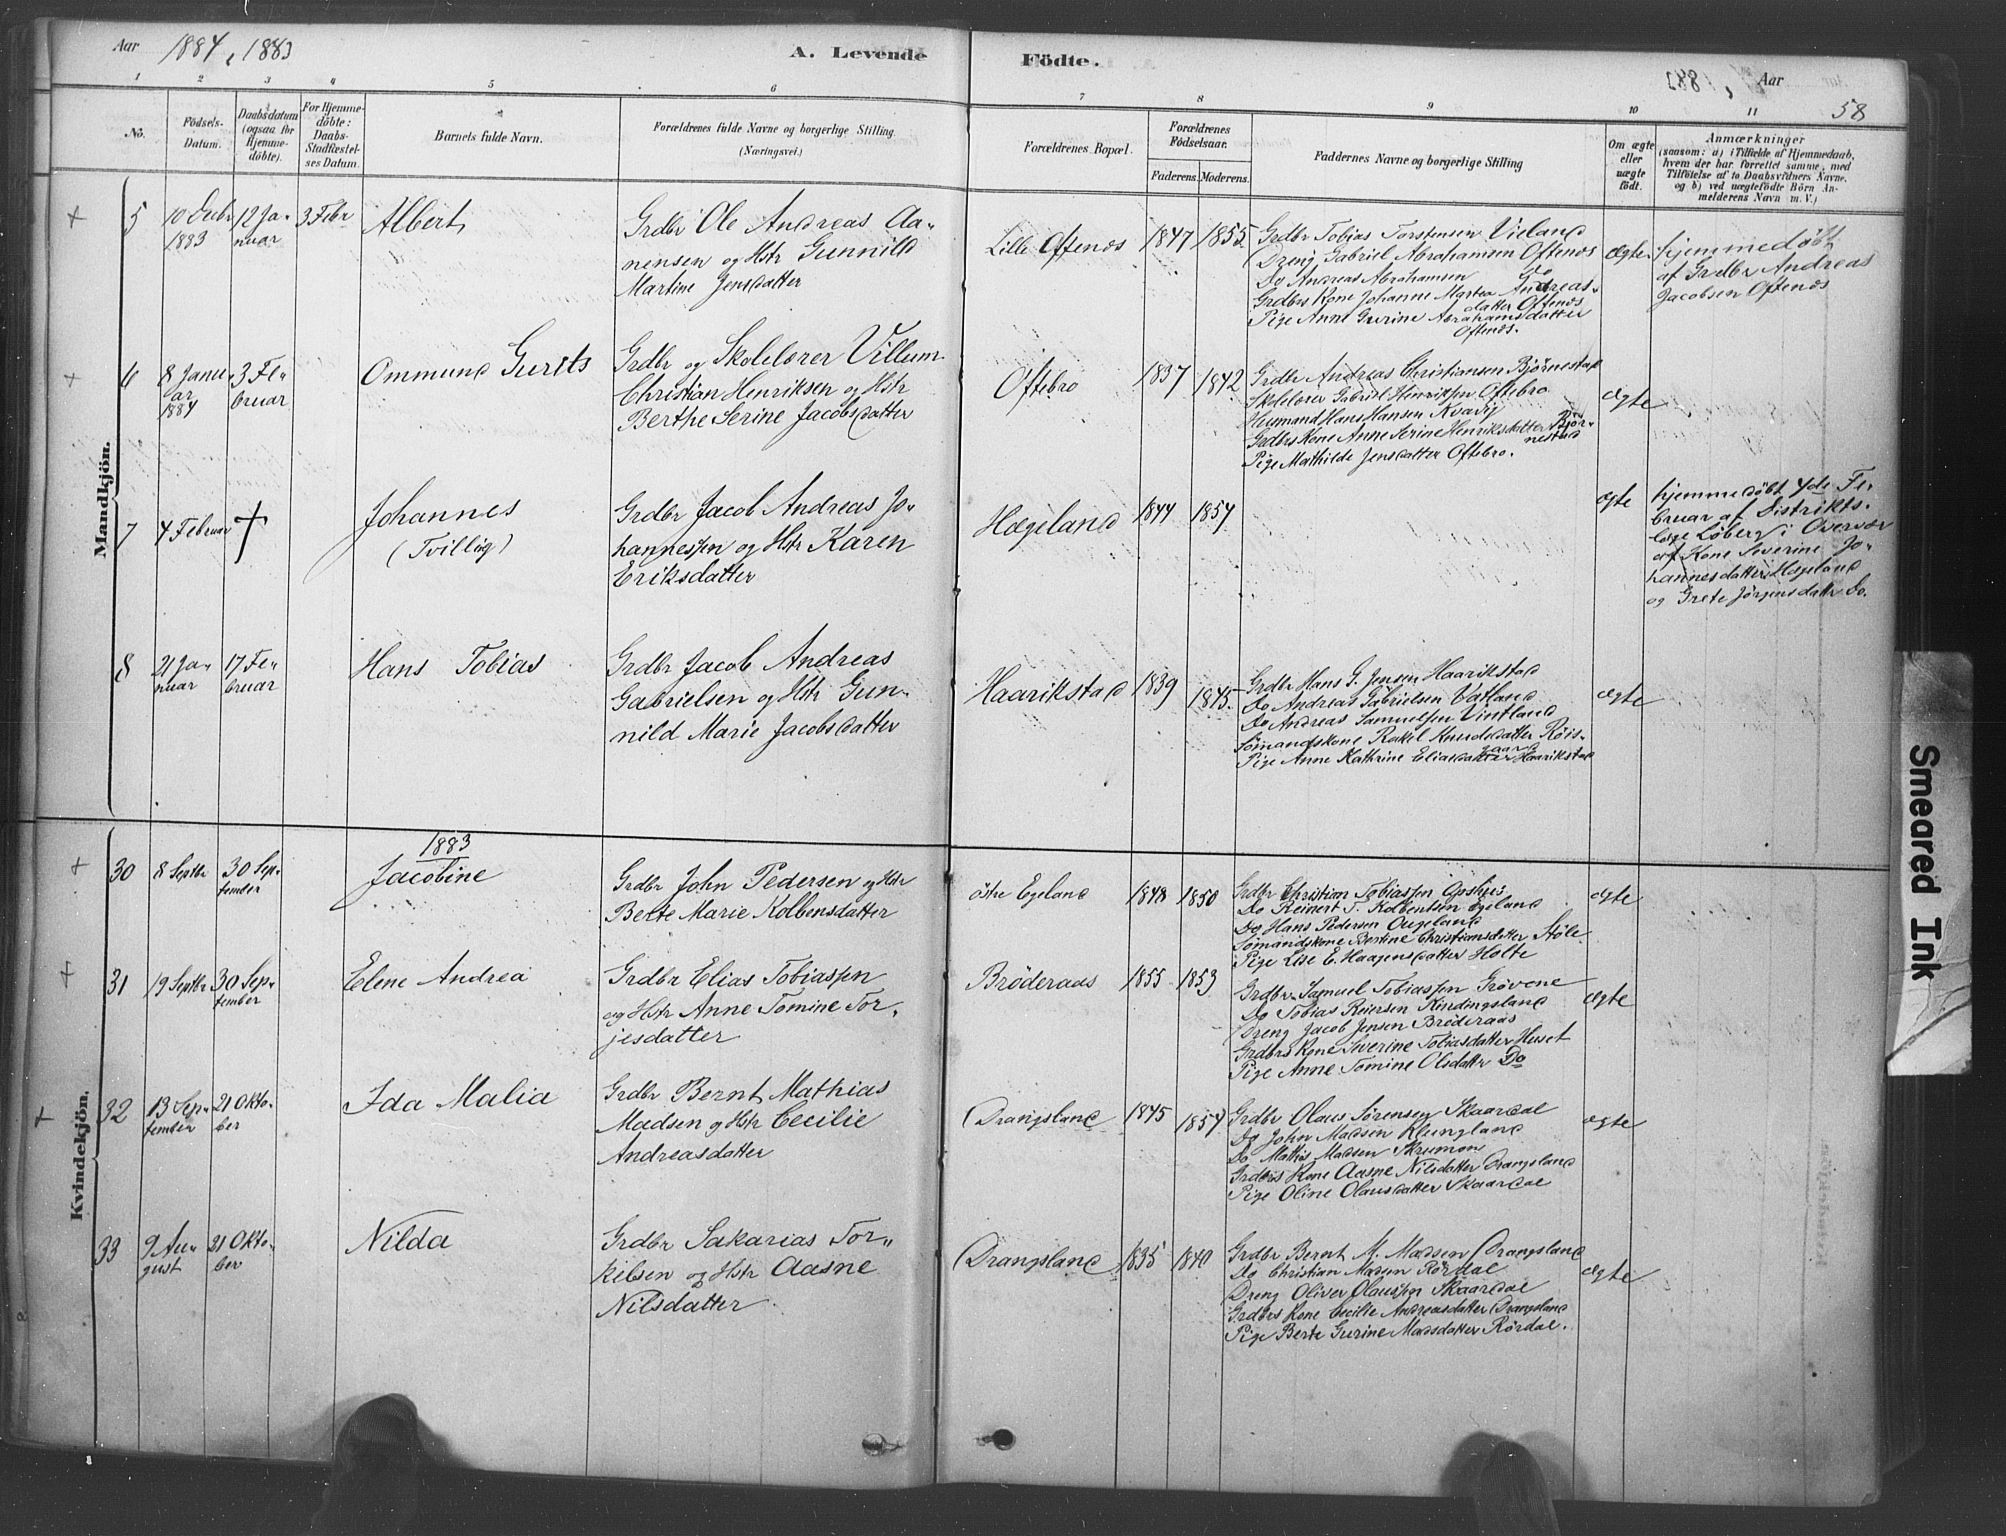 Aar 1884, 1883
A. Levende Födte.
Aar
58
1 2 3 4 5 6 7 8 9 10 11
No.
Födsels-Datum.
Daabsdatum (ogsaa for Hjemmedöbte).
For Hjemmedöbte: Daabs-Stadfæstelses Datum.
Barnets fulde Navn.
Forældrenes fulde Navne og borgerlige Stilling.
(Næringsvei.)
Forældrenes Bopæl.
Forældrenes Födselsaar.
Faderens. Moderens.
Faddernes Navne og borgerlige Stilling
Om ægte eller uægte födt.
Anmærkninger
(saasom: a) i Tilfælde af Hjemmedaab,
hvem der har forrettet samme, med
Tilföielse af to Daabsvidners Navne.
og b) ved uægtefödte Börn An-
melderens Navn m. V.)
Mandkjön.
5
10 Decbr 1883
12 Januar
3 Febr
Albert
Grdbr Ole Andreas Aa-
nensen og Hstr Gunnild
Martine Jensdatter
Lille Oftenes
1847
1855
Grdbr Tobias Torstensen Vieland
Dreng Gabriel Abrahamsen Oftenes
Do Andreas Abrahamsen do
Grdbrs Kone Johanne Martea Andreas-
datter Oftenes
Pige Anne Gurine Abrahamsdatter
Oftenes.
ægte
hjemmedöbt
af Grdbr Andreas
Jacobsen Oftenes
6
8 Januar 1884
3 Februar
Ommund Gerits
Grdbr og Skolelærer Villum
Christian Henriksen og Hstr
Berthe Serine Jacobsdatter
Oftebro
1837
1842
Grdbr Andreas Christiansen Bjørnestad
Skolelærer Gabriel Henriksen Oftebro
Husmand Hans Hansen Kvavig
Grdbrs Kone Anne Serine Henriksdatter Bjør-
nestad
Pige Mathilde Jensdatter Oftebro.
ægte
7
4 Februar
Johannes
(Tvilling)
Grdbr Jacob Andreas Jo-
hannessen og Hstr Karen
Eriksdatter
Hægeland
1844
1854
ægte
hjemmedöbt 4de Fe-
bruar af Distrikts-
læge Løberg i Overvær
af Kone Severine Jo-
hannesdatter Hægeland
og Grete Jörgensdattr do.
8
21 Januar
17 Februar
Hans Tobias
Grdbr Jacob Andreas
Gabrielsen og Hstr Gun-
nild Marie Jacobsdatter
Haarikstad
1839
1845
Grdbr Hans G. Jensen Haarikstad
Do Andreas Gabrielsen Vatland
Do Andreas Samuelsen Vintland
Sømandskone Rakel Knudsdatter Røis-
gaard
Pige Anne Kathrine Eliasdatter Haarikstad
ægte
Kvindekjön.
1883
30
8 Septbr
30 September
Jacobine
Grdbr John Pedersen og Hstr
Berte Marie Kolbensdatter
östre Egeland
1848
1850
Grdbr Christian Tobiassen Goshus
Do Reinert T. Kolbentsen Egeland
Do Hans Pedersen Augeland
Sømandskone Bertine Christiansdatter Støle
Pige Lise E. Haagensdatter Holte
ægte
31
19 Septbr
30 September
Elene Andrea
Grdbr Elias Tobiassen
og Hstr Anne Tomine Tor-
jesdatter
Bröderaas
1855
1853
Grdbr Samuel Tobiassen Grövene
Do Tobias Reiersen Kindingsland
Dreng Jacob Jensen Bröderaas
Grdbrs Kone Severine Tobiasdatter Huset
Pige Anne Tomine Olsdatter Do
ægte
32
13 September
21 Oktober
Ida Malia
Grdbr Bernt Mathias
Madsen og Hstr Cecilie
Andreasdatter
Drangsland
1845
1854
Grdbr Olaus Sørensen Skaardal
Do John Madsen Klungland
Do Mathis Madsen Skrumoen
Grdbrs Kone Aasne Nilsdatter Drangsland
Pige Oline Olausdatter Skaardal
ægte
33
9 August
21 Oktober
Nilda
Grdbr Sakarias Tor-
kelsen og Hstr Aasne
Nilsdatter
Drangsland
1835
1840
Grdbr Bernt M. Madsen Drangsland
Do Christian Madsen Rördal
Dreng Oliver Olaussen Skaardal
Grdbrs Kone Cecilie Andreasdatter Drangsland
Pige Berte Gurine Madsdatter Rördal.
ægte
Smeared Ink